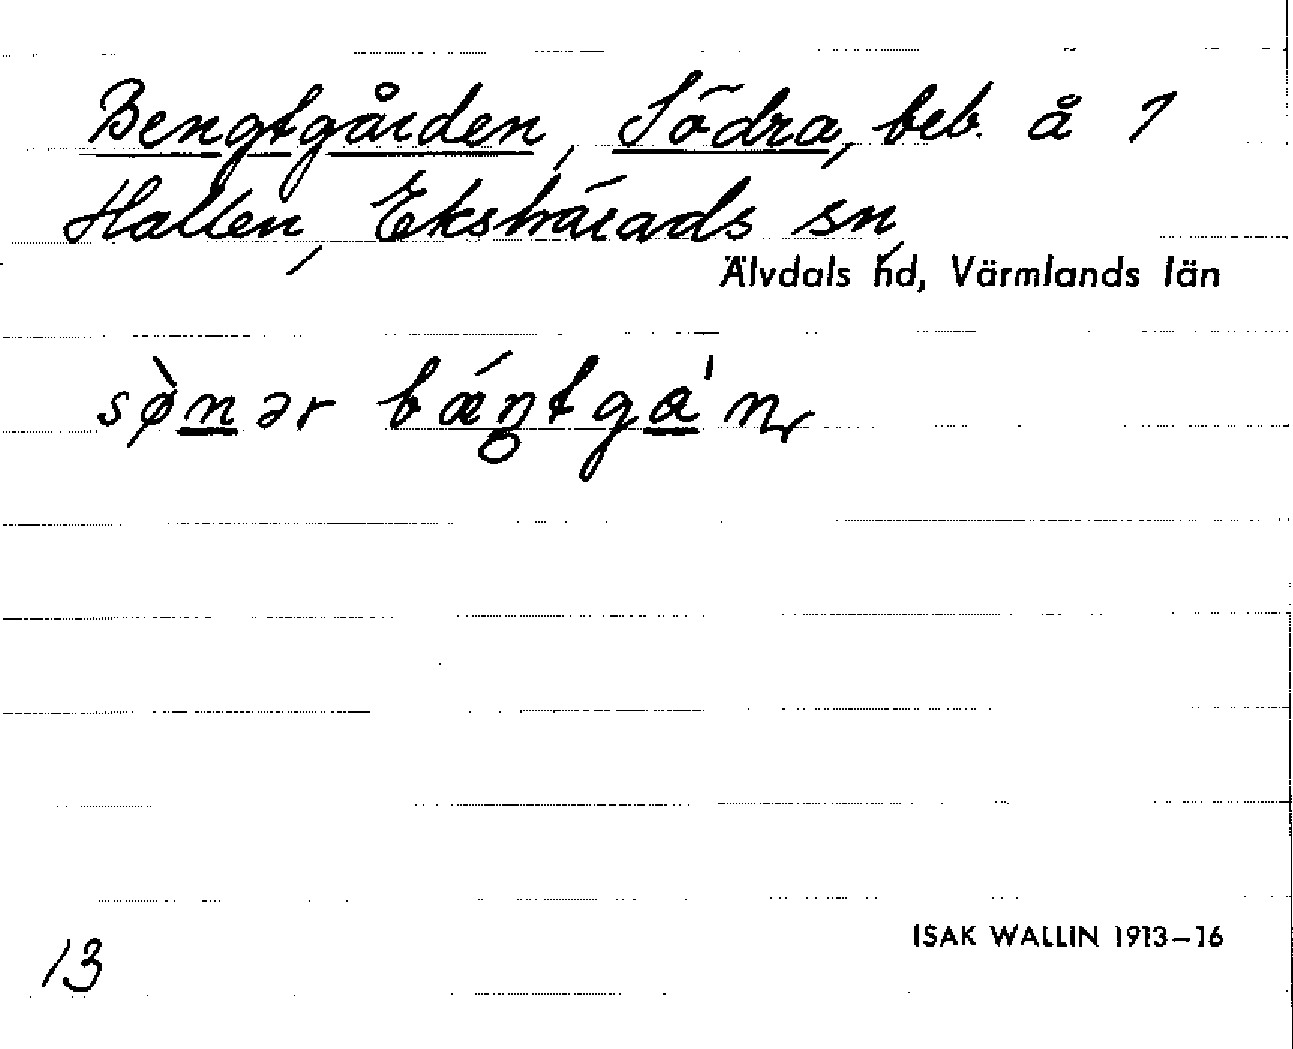 Bengtgården, Södra, beb. å 1
Hallen, Ekshärads sn,
Älvdals hd, Värmlands län
sø̀nər bǽŋtga'ɳ
13
ISAK WALLIN 1913–16